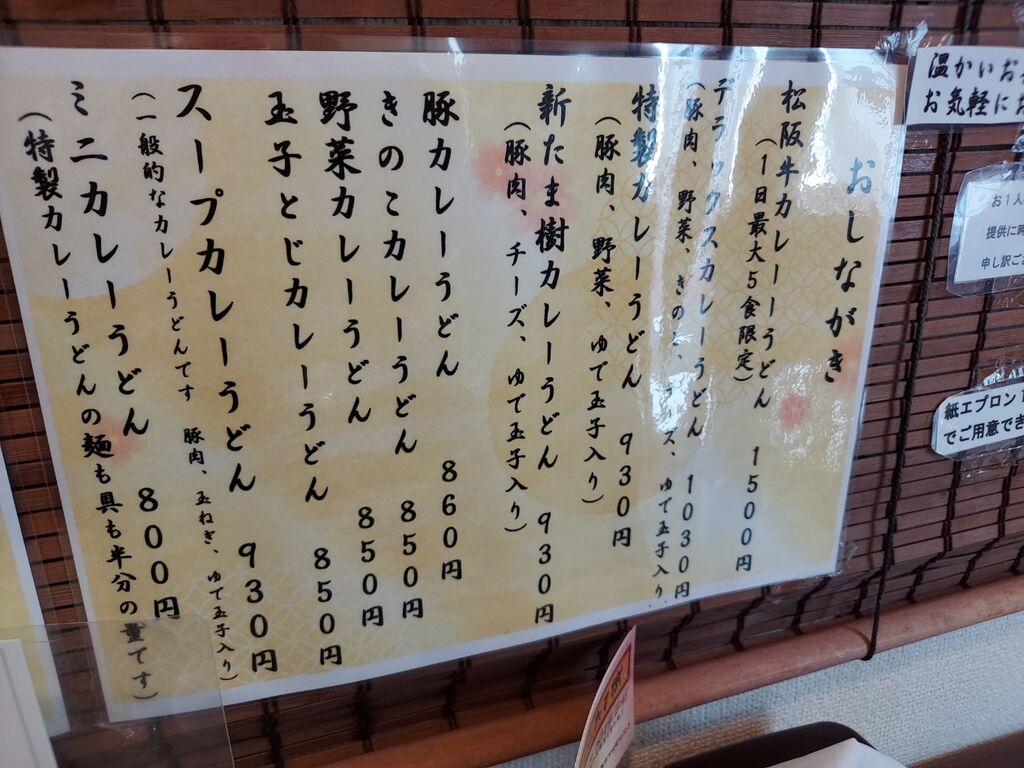 おしながき
松阪牛カレーうどん 1500円
(1日最大5食限定)
デラックスカレーうどん 1030円
(豚肉、野菜、きのこ、チーズ、ゆで玉子入り)
特製カレーうどん 930円
(豚肉、野菜、ゆで玉子入り)
新たま樹カレーうどん 930円
(豚肉、チーズ、ゆで玉子入り)
豚カレーうどん 860円
きのこカレーうどん 850円
野菜カレーうどん 850円
玉子とじカレーうどん 850円
スープカレーうどん 930円
(一般的なカレーうどんです 豚肉、玉ねぎ、ゆで玉子入り)
ミニカレーうどん 800円
(特製カレーうどんの麺も具も半分の量です)
温かいお
お気軽にお
お1人
提供に時
申し訳ご
紙エプロン
でご用意でき